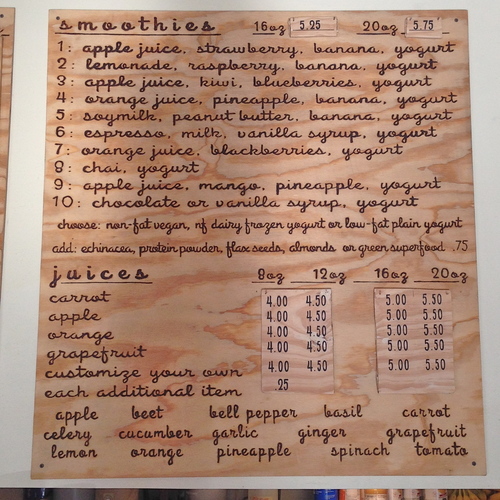 smoothies 16oz 5.25 20oz 5.75
1: apple juice, strawberry, banana, yogurt
2: lemonade, raspberry, banana, yogurt
3: apple juice, kiwi, blueberries, yogurt
4: orange juice, pineapple, banana, yogurt
5: soymilk, peanut butter, banana, yogurt
6: espresso, milk, vanilla syrup, yogurt
7: orange juice, blackberries, yogurt
8: chai, yogurt
9: apple juice, mango, pineapple, yogurt
10: chocolate or vanilla syrup, yogurt
choose: non-fat vegan, nf dairy frozen yogurt or low-fat plain yogurt
add: echinacea, protein powder, flax seeds, almonds or green superfood .75
juices 8oz 12oz 16oz 20oz
carrot 4.00 4.50 5.00 5.50
apple 4.00 4.50 5.00 5.50
orange 4.00 4.50 5.00 5.50
grapefruit 4.00 4.50 5.00 5.50
customize your own 4.00 4.50 5.00 5.50
each additional item .25
apple beet bell pepper basil carrot
celery cucumber garlic ginger grapefruit
lemon orange pineapple spinach tomato